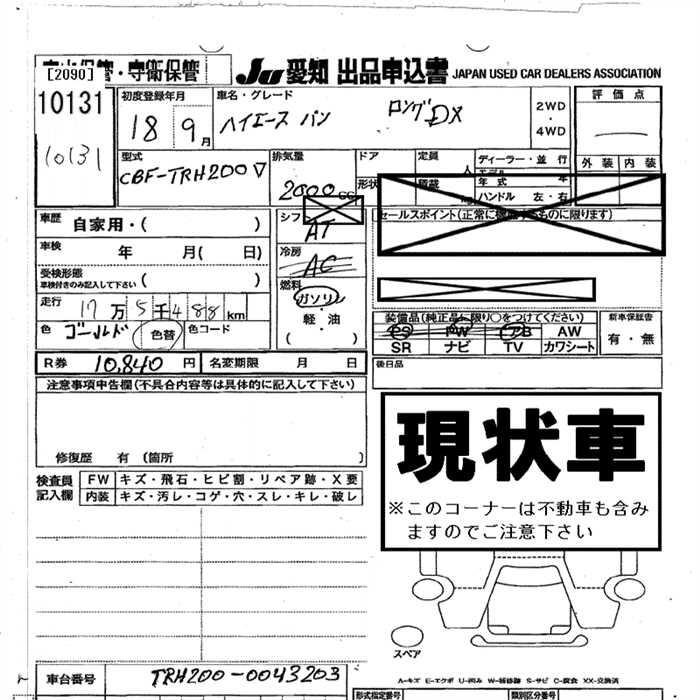 [2090] 保管・守衛保管
JU 愛知 出品申込書 JAPAN USED CAR DEALERS ASSOCIATION
10131
10131
初度登録年月
18年9月
車名・グレード
ハイエース バン ロングDX
2WD
・
4WD
評価点
外装 内装
型式
CBF-TRH200V
排気量
2000cc
ドア
形状
定員
人
積載
ディーラー・並行
モデル
年式 年
ハンドル 左・右
車歴 自家用・( )
シフト
AT
セールスポイント(正常に機能するものに限ります)
車検 年 月( 日)
冷房
AC
受検形態
車検付きのみ記入して下さい ( )
燃料
ガソリン
・
軽・油
( )
走行 17万5千488km
色 ゴールド 色替 色コード
装備品(純正品に限り○をつけてください)
PS PW AB AW
SR ナビ TV カワシート
新車保証書
有・無
R券 10,840円 名変期限 月 日
後日品
注意事項申告欄(不具合内容等は具体的に記入して下さい)
修復歴 有(箇所 )
現状車
※このコーナーは不動車も含み
ますのでご注意下さい
検査員
記入欄
FW キズ・飛石・ヒビ割・リペア跡・X要
内装 キズ・汚レ・コゲ・穴・スレ・キレ・破レ
スペア
A-キズ E-エクボ U-凹み W-補修跡 S-サビ C-腐食 XX-交換済
車台番号 TRH200-0043203
型式指定番号 類別区分番号